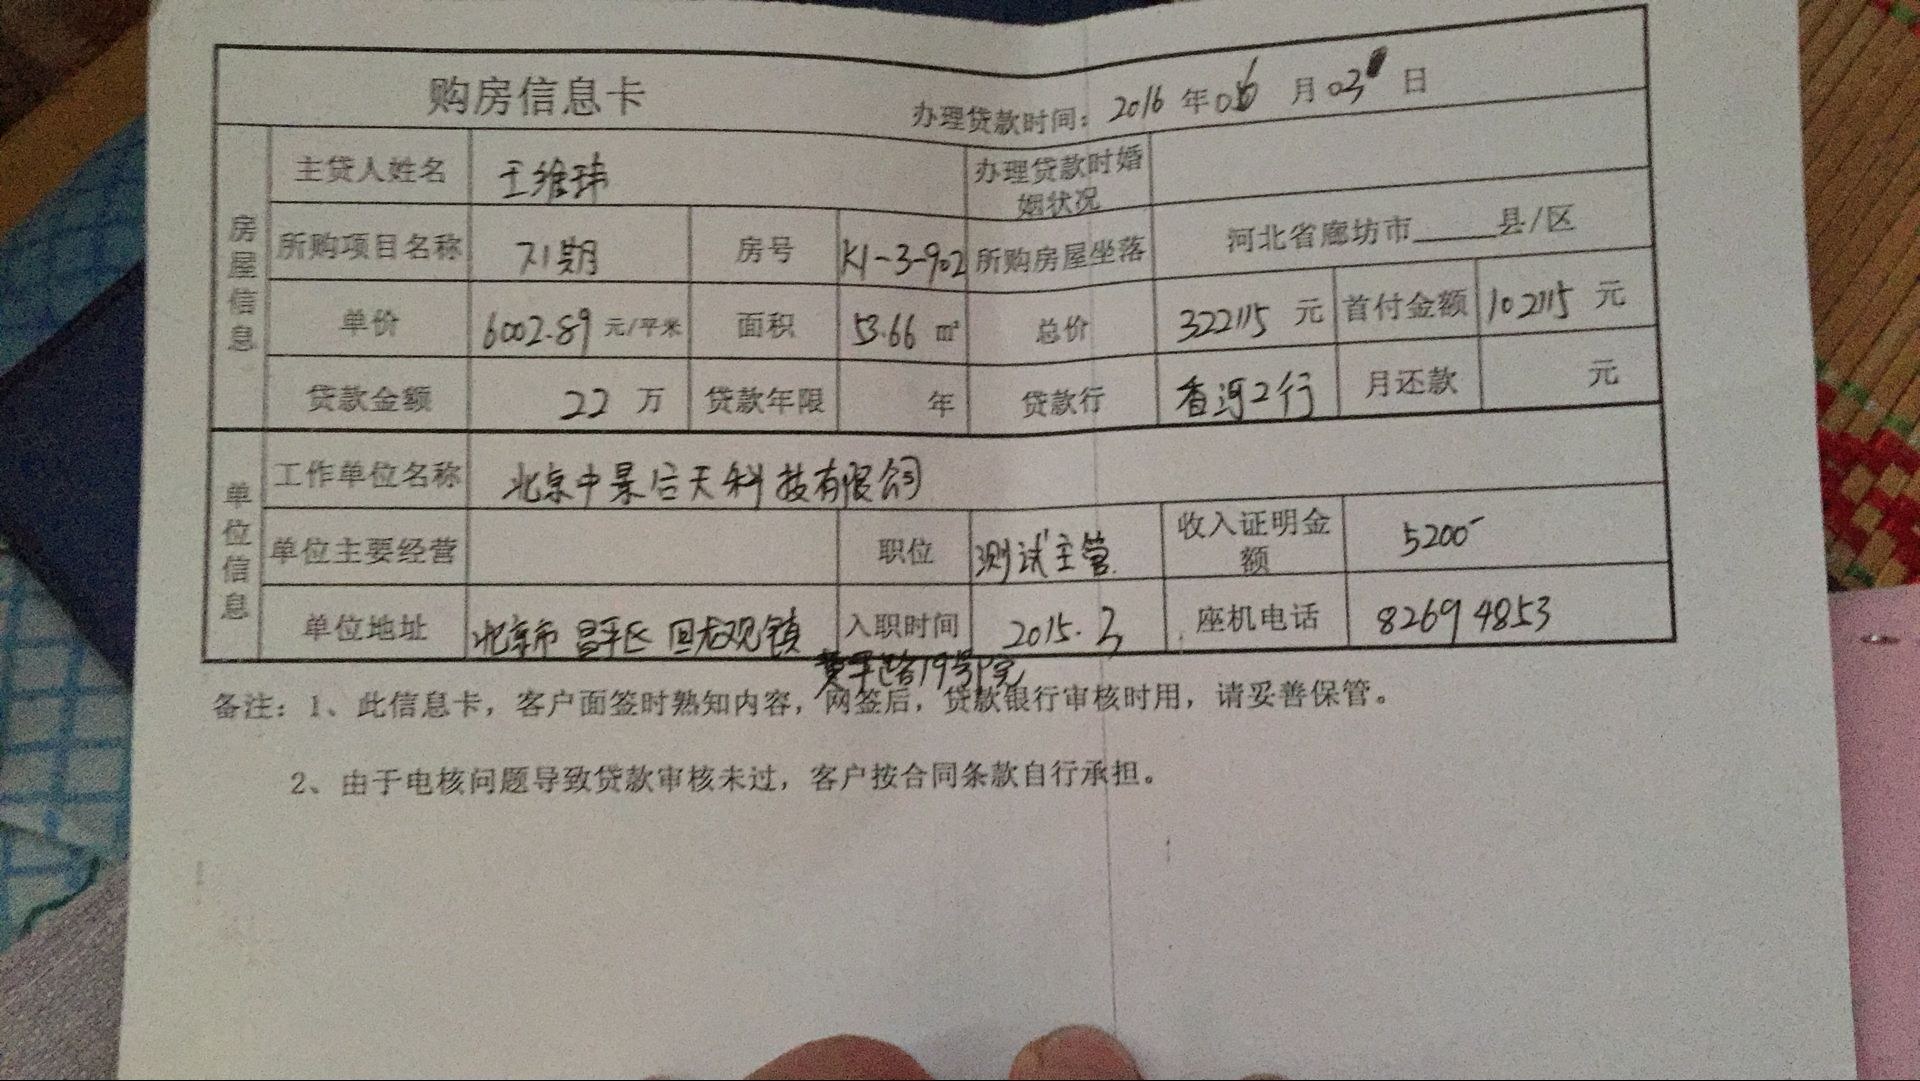 购房信息卡 办理贷款时间：2016 年 06 月 03 日
房屋信息
主贷人姓名 王维玮 办理贷款时婚姻状况
所购项目名称 71期 房号 K1-3-902 所购房屋坐落 河北省廊坊市____县/区
单价 6002.89 元/平米 面积 53.66 m² 总价 322115 元 首付金额 102115 元
贷款金额 22 万 贷款年限 年 贷款行 香河工行 月还款 元
单位信息
工作单位名称 北京中景后天科技有限公司
单位主要经营 职位 测试主管 收入证明金额 5200
单位地址 北京市昌平区回龙观镇 入职时间 2015.3 座机电话 82694853
黄平路19号院
备注：1、此信息卡，客户面签时熟知内容，网签后，贷款银行审核时用，请妥善保管。
2、由于电核问题导致贷款审核未过，客户按合同条款自行承担。